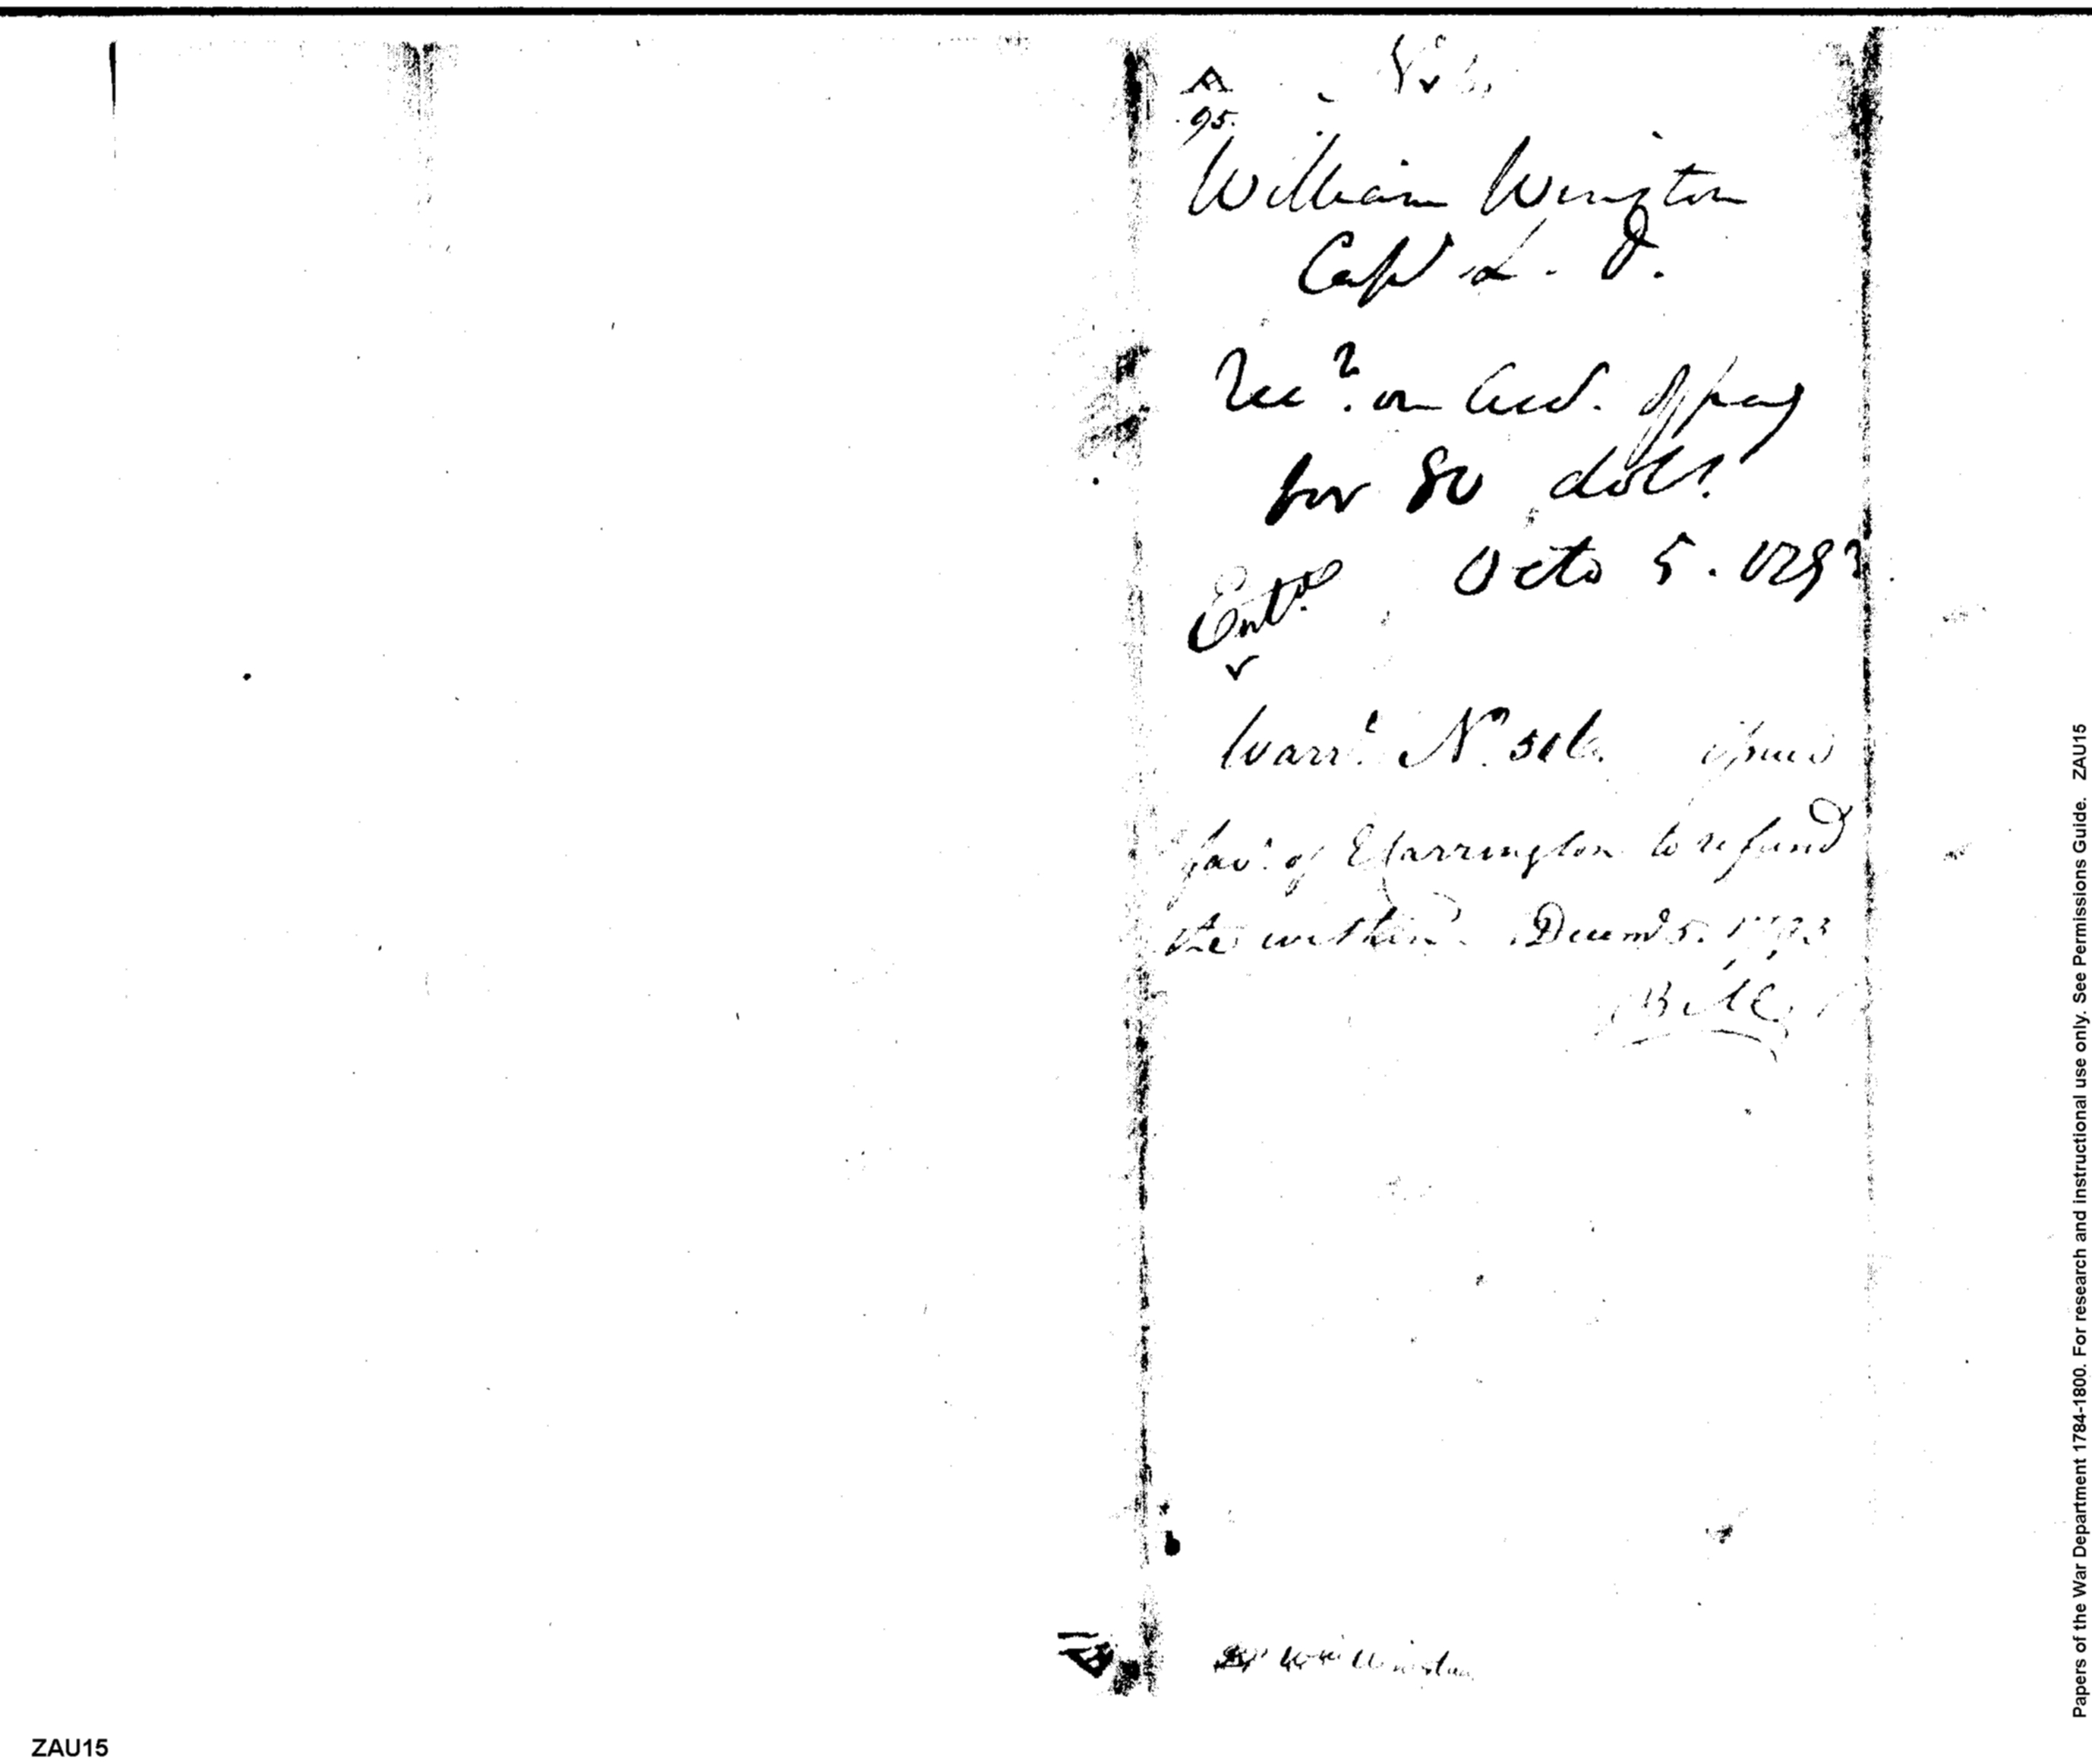 A
95.
William Winston
Capt L. D.
Rec.t on Acct. of pay
for 80 dolls.
Octo 5. 1793
Entd.
Warrt. No. 516. issued
favr. of E Harrington to refund
the within. Decemr 5. 1793
Wm Winston
Papers of the War Department 1784-1800. For research and instructional use only. See Permissions Guide. ZAU15
ZAU15